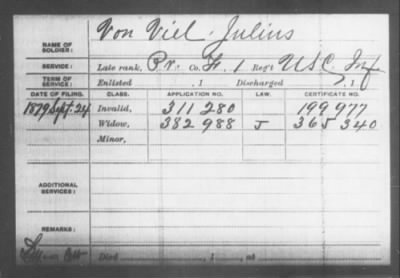 NAME OF SOLDIER: Von Viel Julius
SERVICE: Late rank, Pri. Co. F. 1 Reg't U.S.C. Inf
TERM OF SERVICE: Enlisted , 1 Discharged , 1
DATE OF FILING. CLASS. APPLICATION NO. LAW. CERTIFICATE NO.
1879 Sept. 24 Invalid, 311280 199977
Widow, 382988 J 365340
Minor,
ADDITIONAL SERVICES:
REMARKS:
Died , 1 , at